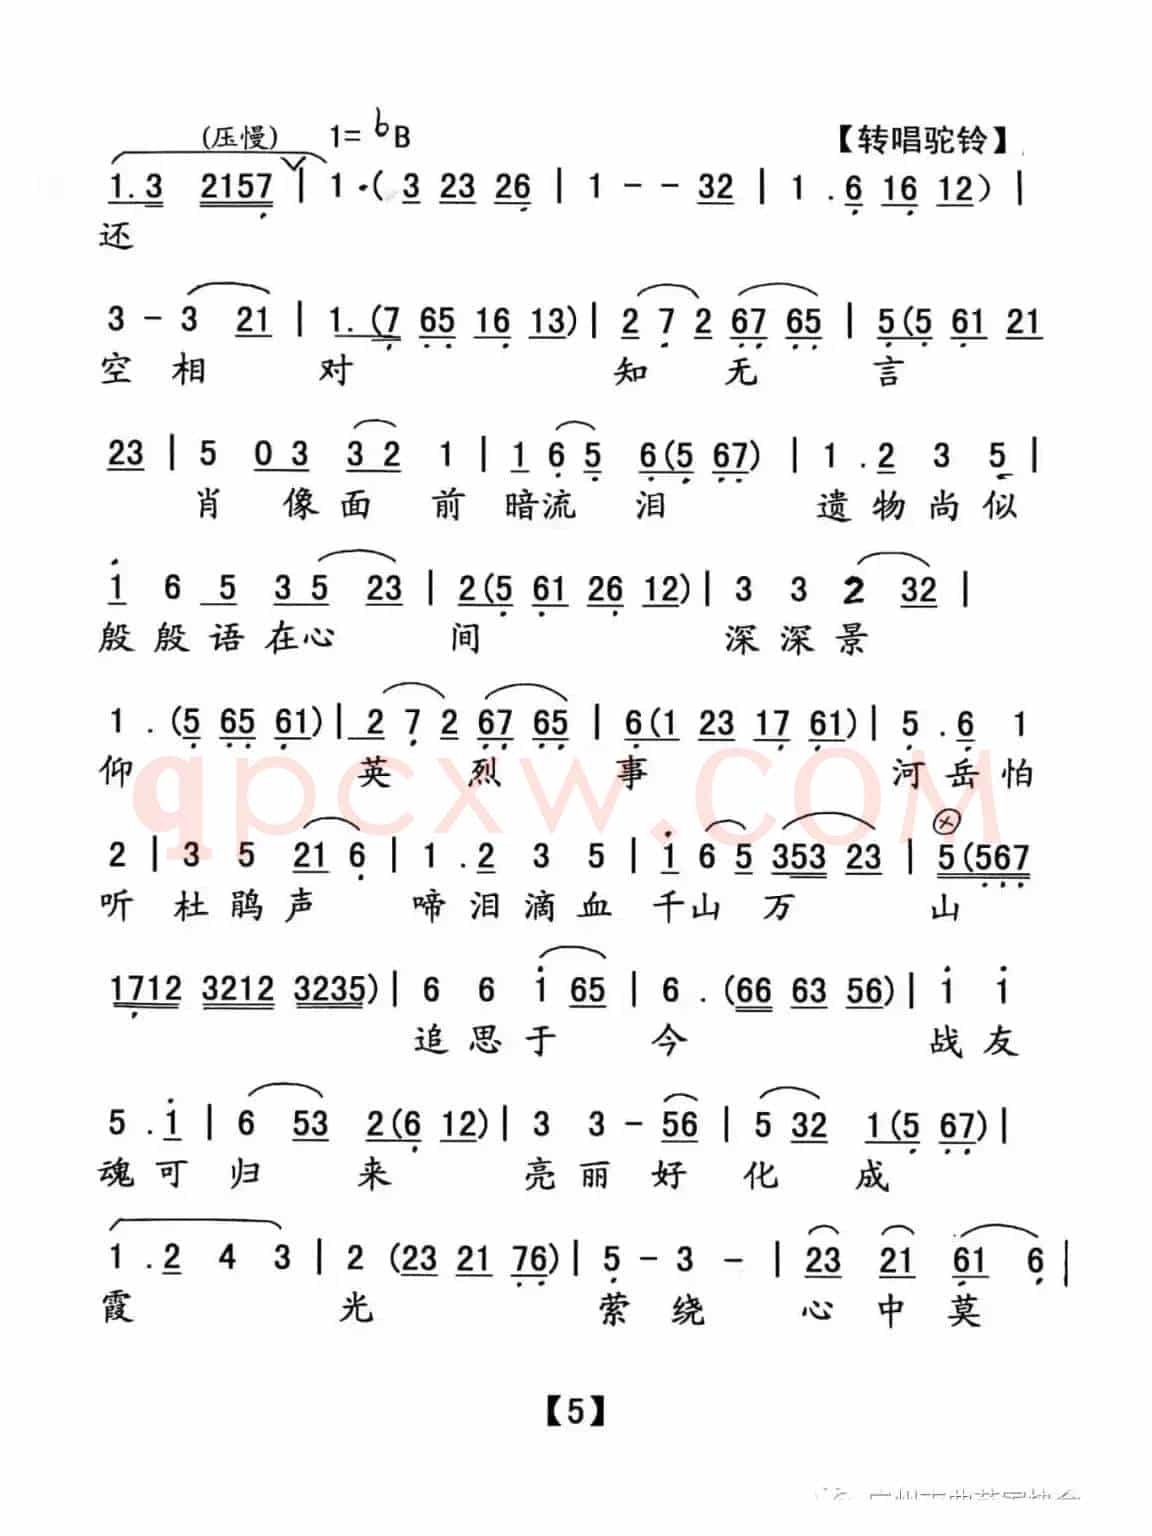 (压慢) 1= bB 【转唱驼铃】
1.3 2157 | 1 ·( 3 23 26 | 1 - - 32 | 1 . 6 16 12 ) |
还
3 - 3 21 | 1. (7 65 16 13) | 2 7 2 67 65 | 5(5 61 21
空相 对 知 无 言
23 | 5 0 3 3 2 1 | 1 6 5 6(5 67) | 1 . 2 3 5 |
肖 像面 前 暗流 泪 遗物尚似
1 6 5 3 5 23 | 2(5 61 26 12) | 3 3 2 32 |
殷殷语在心 间 深深景
1 . (5 65 61) | 2 7 2 67 65 | 6(1 23 17 61) | 5 . 6 1
仰 英 烈 事 河岳怕
2 | 3 5 21 6 | 1 . 2 3 5 | 1 6 5 353 23 | 5(567
听 杜鹃声 啼泪滴血 千山 万 山
1712 3212 3235) | 6 6 1 65 | 6 . (66 63 56) | 1 1
追思于 今 战友
5 . 1 | 6 53 2(6 12) | 3 3 - 56 | 5 32 1(5 67) |
魂可 归 来 亮丽 好 化 成
1 . 2 4 3 | 2 (23 21 76) | 5 - 3 - | 23 21 61 6 |
霞 光 萦绕 心中莫
【5】
qpcxw.com